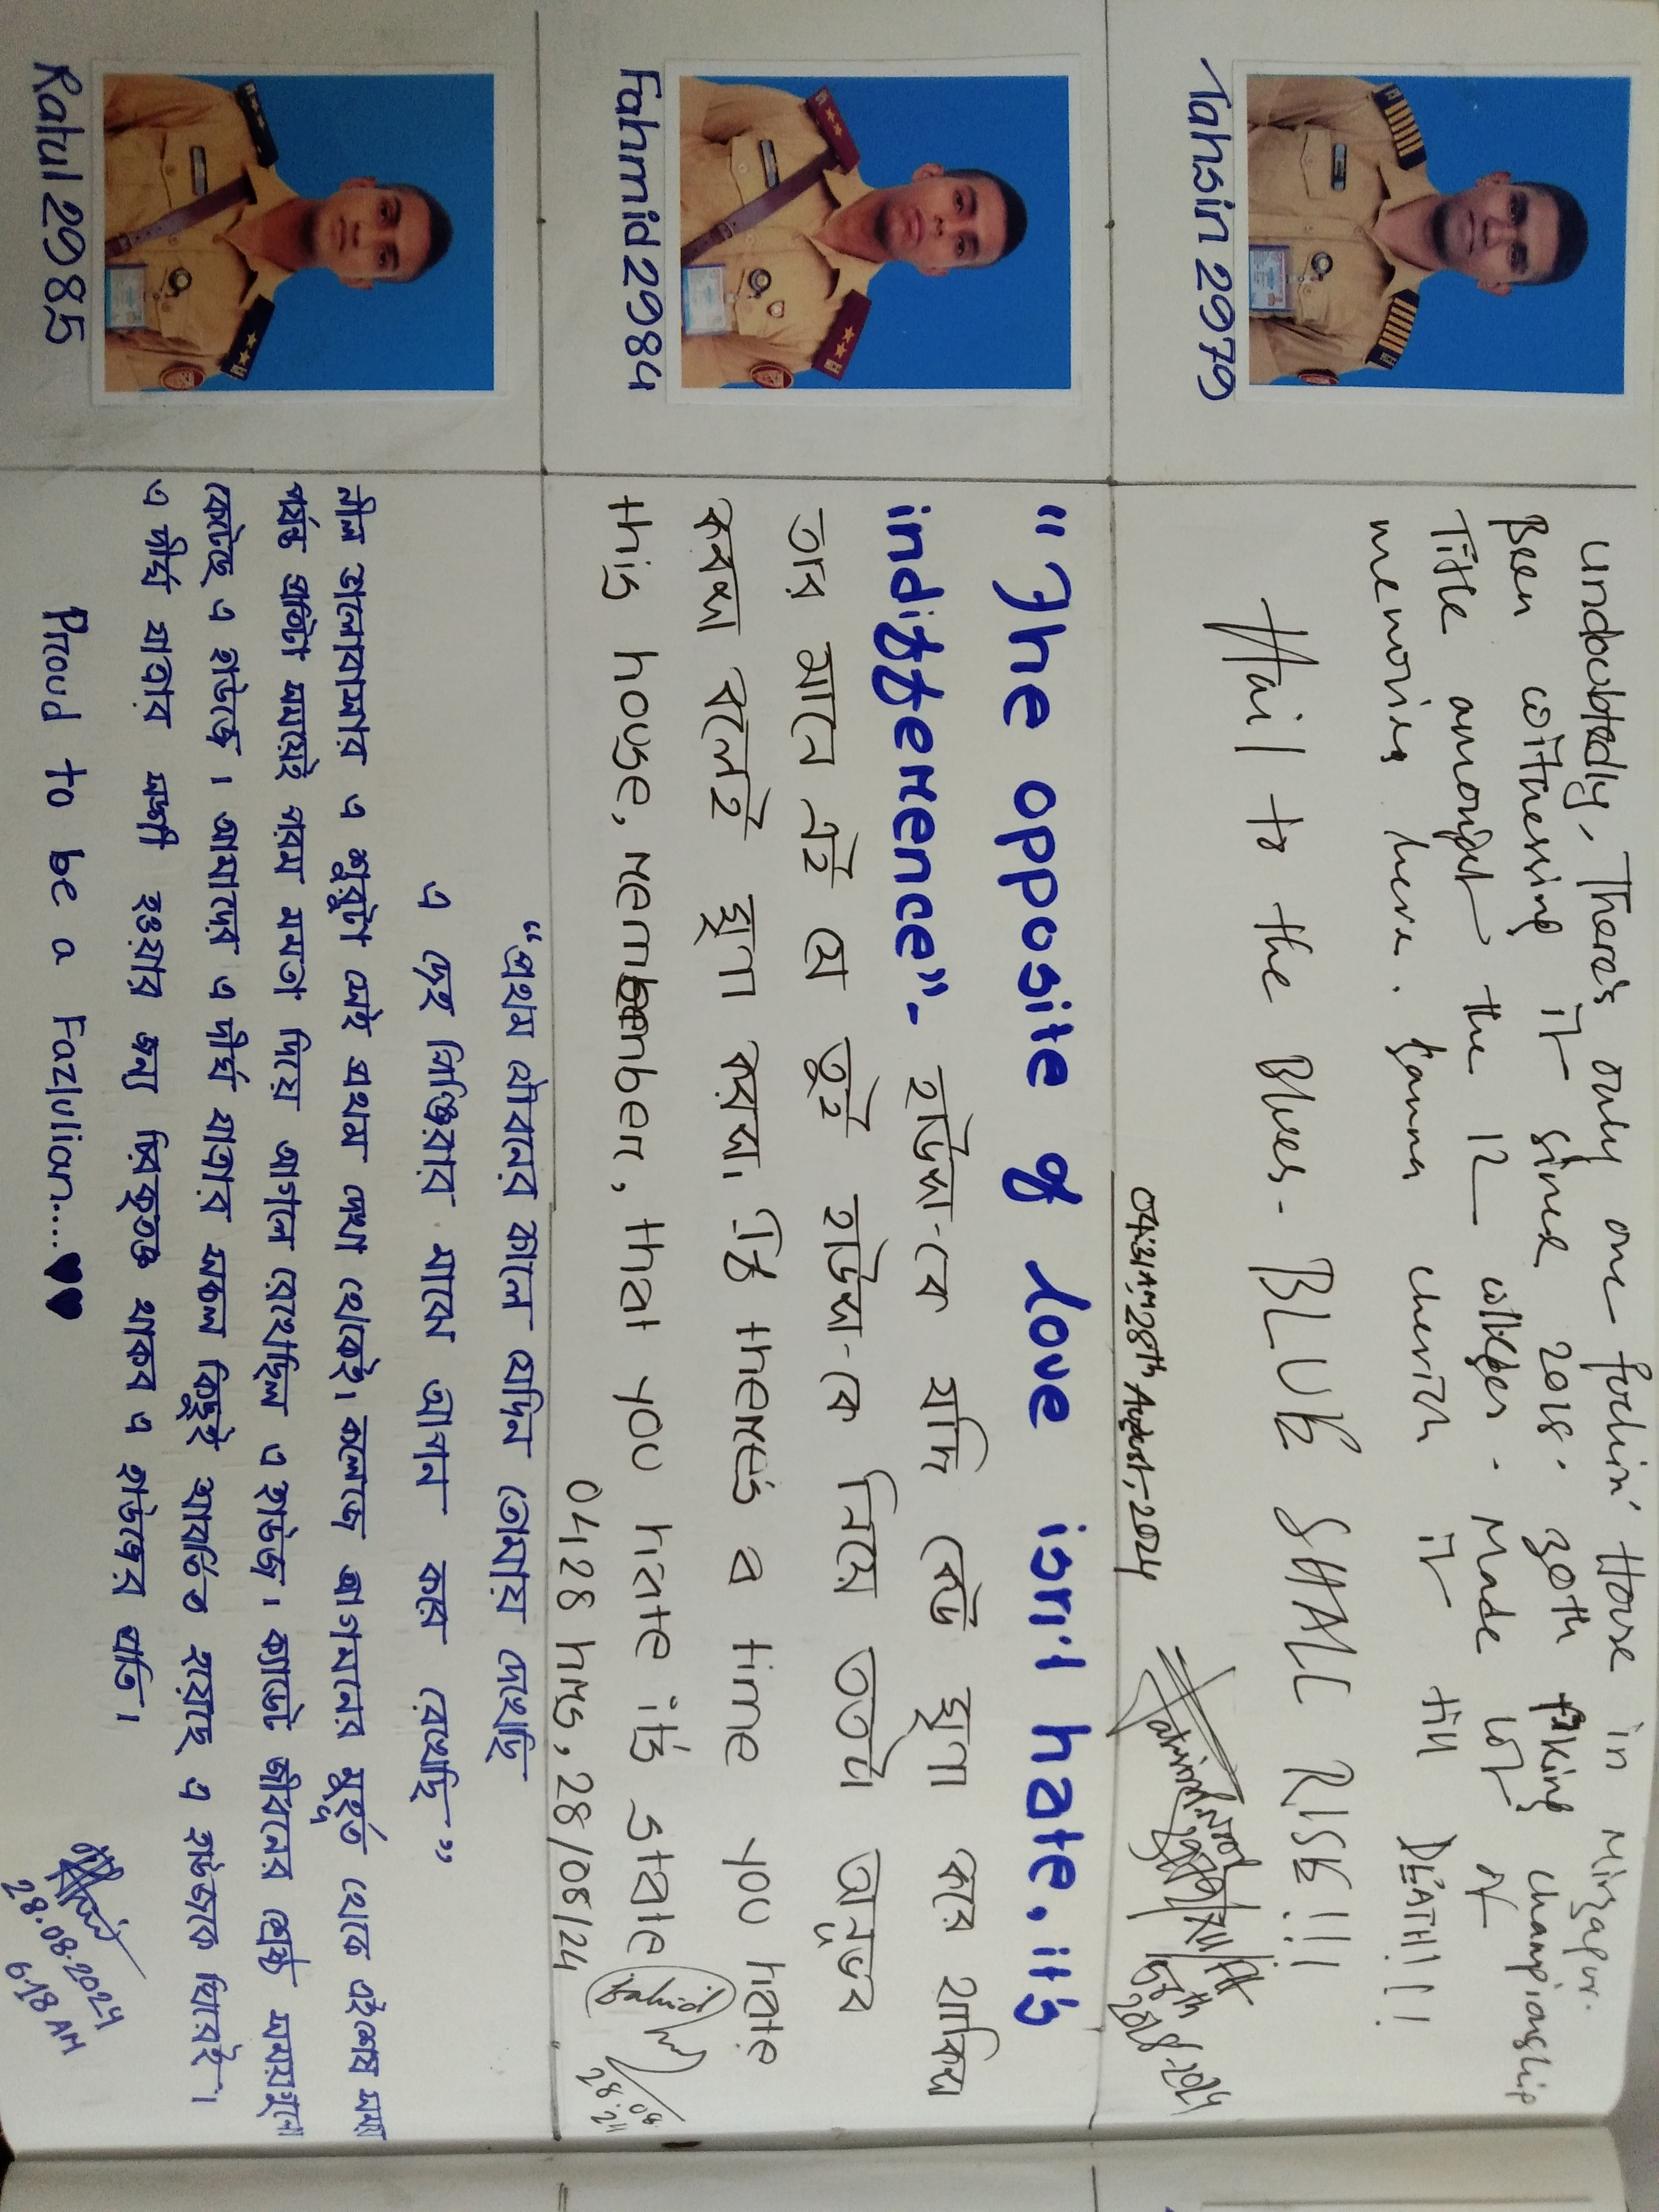 undoubtedly, There's only one fuckin' House in Mirzapur.
Been witnessing it since 2018. 30th f**king championship
Title amongst the 12 colleges. Made lot of
memories here. Ganna cherish it till DEATH!!!
Hail to the Blues- BLUE SHALL RISE!!!
Tahsin 2979
2979/XII/FH
58th
2018-2024
04:31AM, 28th August, 2024
"The opposite of love isn't hate, it's
indifference"- হাউস-কে যদি কেউ ঘৃণা করে থাকিস
তার মানে এই যে তুই হাউস-কে নিয়ে ততটা অনূভব
করস বলেই ঘৃণা করস। If there's a time you hate
this house, remember, that you hate it's state
Fahmid
28.08.24
0428 hrs, 28/08/24
Fahmid 2984
"প্রথম যৌবনের কালে যেদিন তোমায় দেখেছি
এ দেহ পিঞ্জিরার মাঝে আপন করে রেখেছি"
নীল ভালোবাসার এ শুরুটা সেই প্রথম দেখা থেকেই। কলেজে আগমনের মুহূর্ত থেকে এই শেষ সময়
পর্যন্ত প্রতিটা সময়েই পরম মমতা দিয়ে আগলে রেখেছিল এ হাউজ। ক্যাডেট জীবনের শ্রেষ্ঠ সময়গুলো
কেটেছে এ হাউজে। আমাদের এ দীর্ঘ যাত্রার সকল কিছুই আবর্তিত হয়েছে এ হাউজকে ঘিরেই।
এ দীর্ঘ যাত্রার সঙ্গী হওয়ার জন্য চিরকৃতজ্ঞ থাকব এ হাউজের প্রতি।
Proud to be a Fazlulian....♥♥
28.08.2024
6.18 AM
Ratul 2985